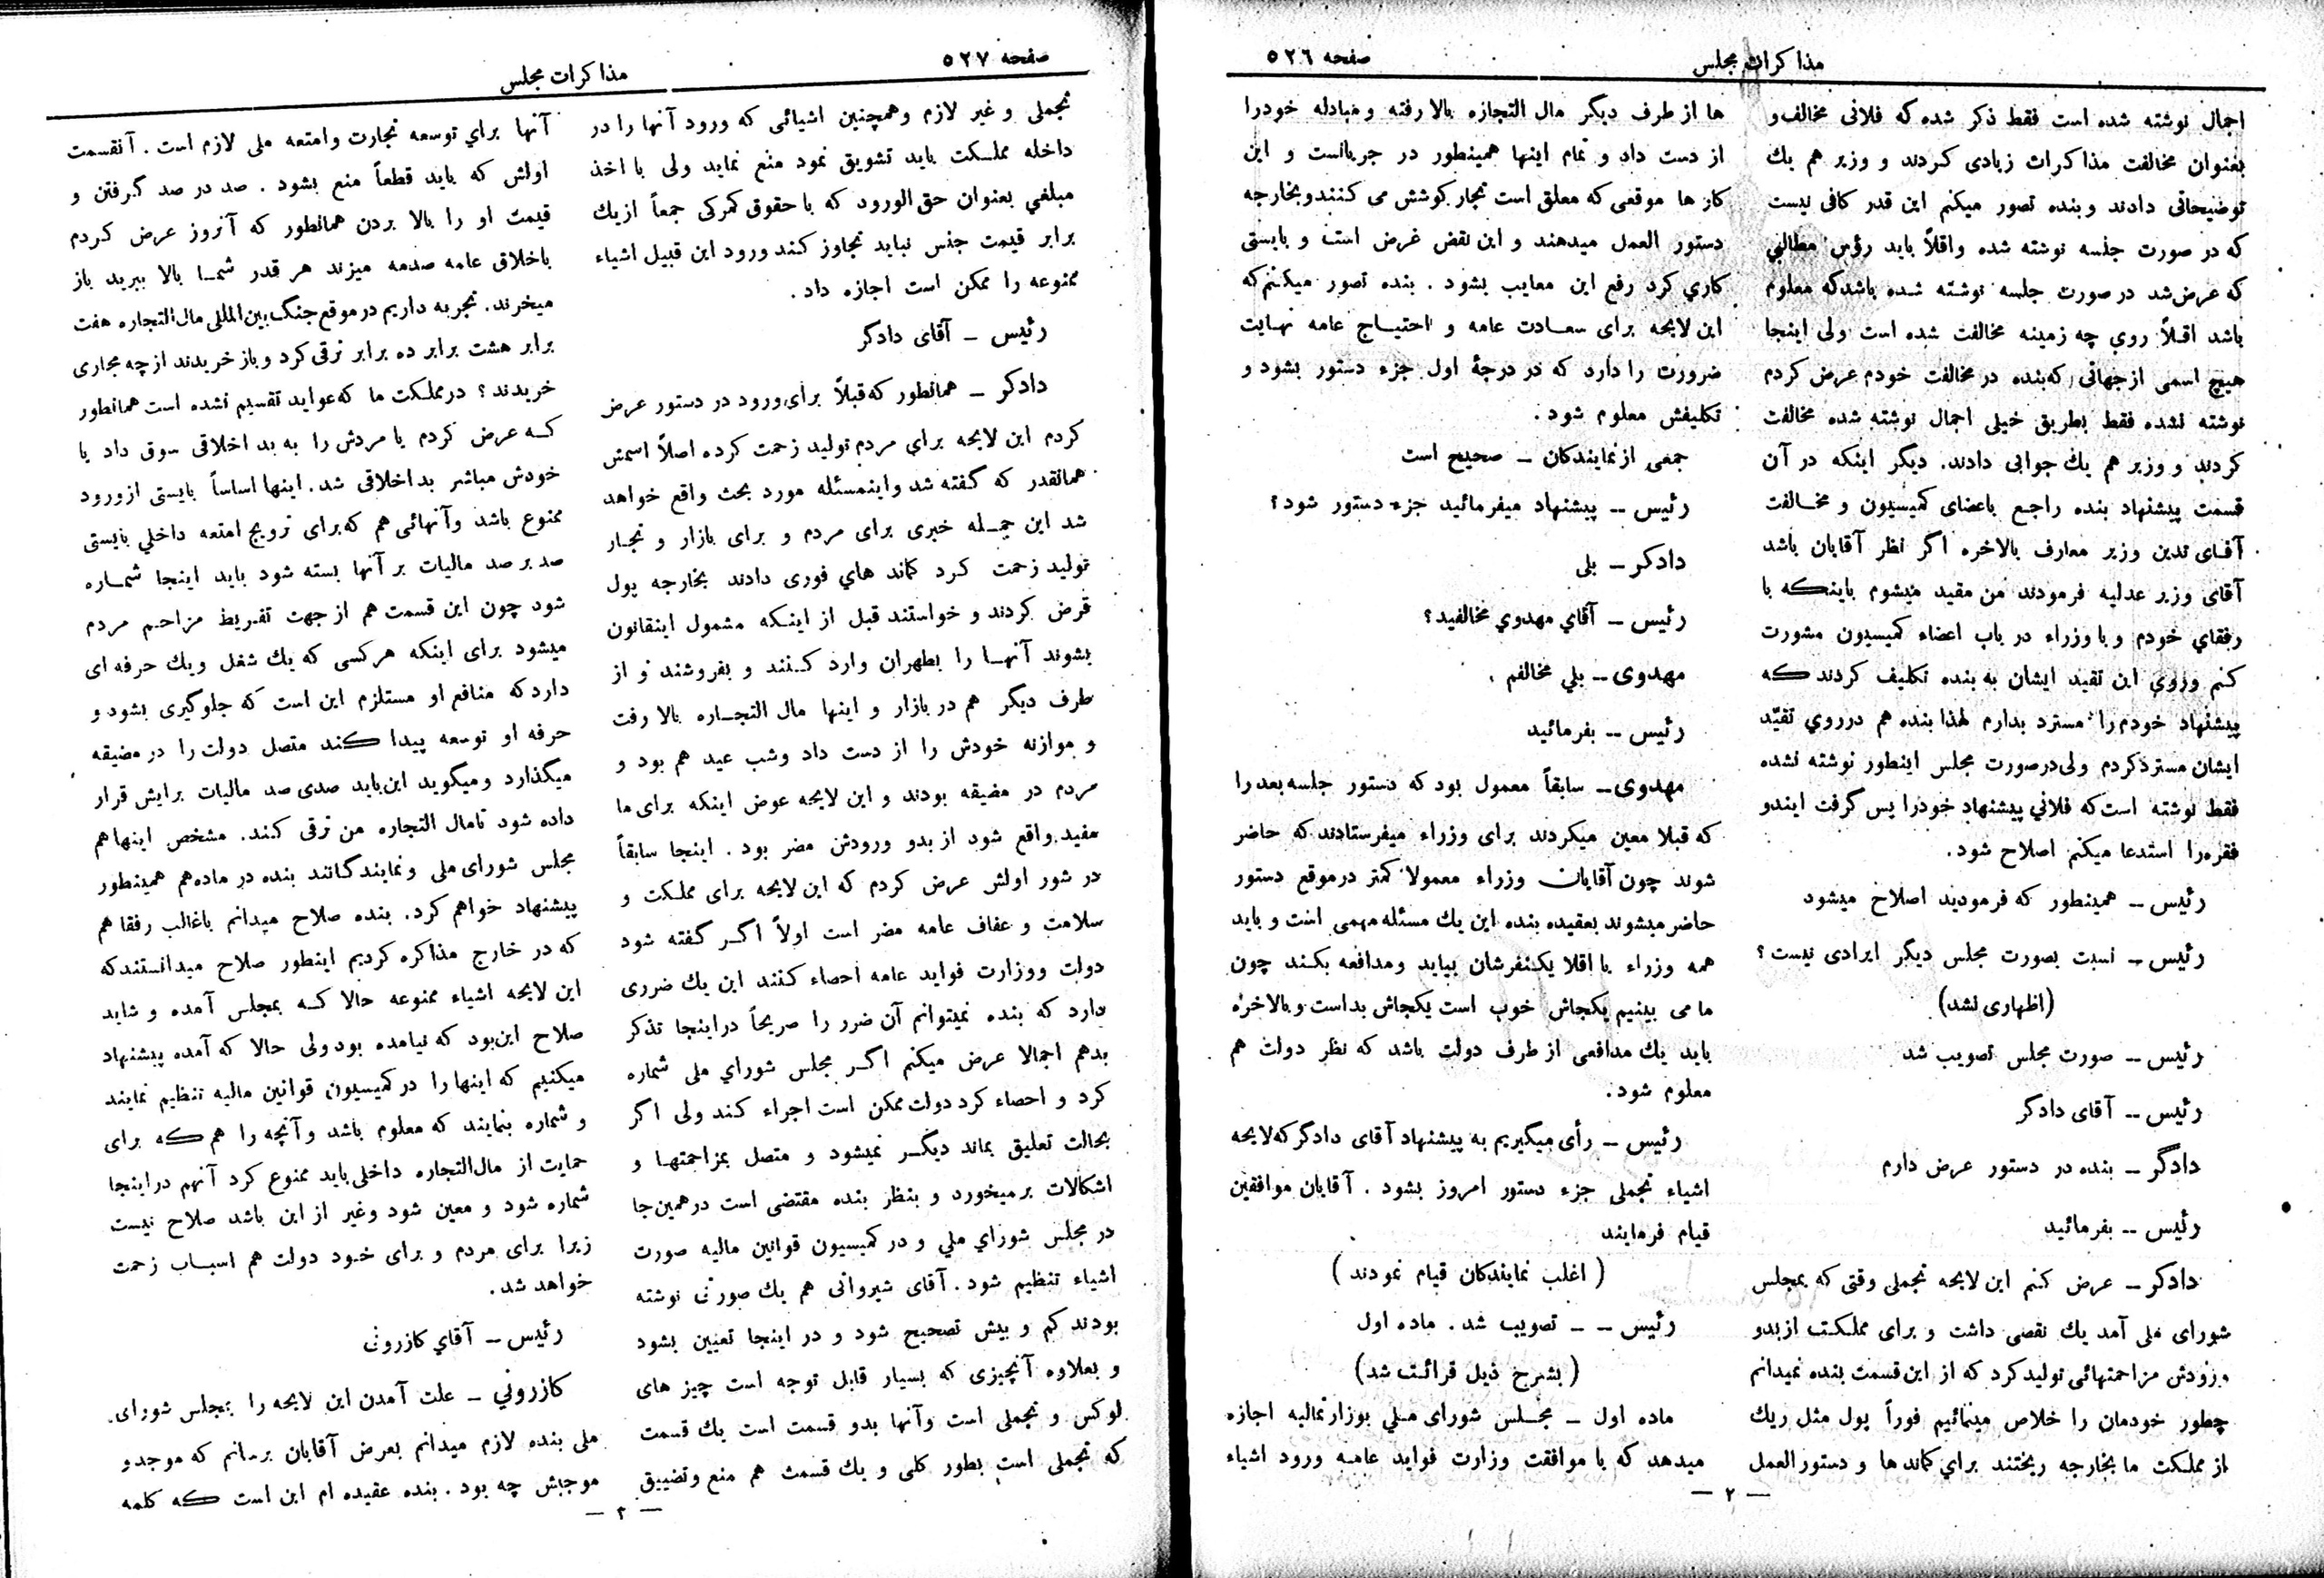 مذاکرات مجلس
صفحه ۵۲۶
اجمال نوشته شده است فقط ذکر شده که فلانی مخالف و
بعنوان مخالفت مذاکرات زیادی کردند و وزیر هم یك
توضیحاتی دادند و بنده تصور میکنم این قدر کافی نیست
که در صورت جلسه نوشته شده واقلاً باید رؤس مطالبي
که عرض شد در صورت جلسه نوشته شده باشد که معلوم
باشد اقلاً روي چه زمینه مخالفت شده است ولی اینجا
هیچ اسمی از جهاتی که بنده در مخالفت خودم عرض کردم
نوشته نشده فقط بطریق خیلی اجمال نوشته شده مخالفت
کردند و وزیر هم یك جوابی دادند. دیگر اینکه در آن
قسمت پیشنهاد بنده راجع باعضای کمیسیون و مخالفت
آقای تدین وزیر معارف بالاخره اگر نظر آقایان باشد
آقای وزیر عدلیه فرمودند من مقید میشوم باینکه با
رفقاي خودم و با وزراء در باب اعضاء کمیسیون مشورت
کنم وروي این تقید ایشان به بنده تکلیف کردند که
پیشنهاد خودم را مسترد بدارم لهذا بنده هم در روي تقیّد
ایشان مسترد کردم ولی در صورت مجلس اینطور نوشته نشده
فقط نوشته است که فلاني پیشنهاد خود را پس گرفت ایندو
فقره را استدعا میکنم اصلاح شود.
رئیس – همینطور که فرمودید اصلاح میشود
رئیس – نسبت بصورت مجلس دیگر ایرادی نیست؟
(اظهاری نشد)
رئیس – صورت مجلس تصویب شد
رئیس – آقای دادگر
دادگر – بنده در دستور عرض دارم
رئیس – بفرمائید
دادگر – عرض کنم این لایحه تجملی وقتی که بمجلس
شورای ملی آمد یك نقصی داشت و برای مملکت از بدو
ورودش مزاحمتهائی تولید کرد که از این قسمت بنده نمیدانم
چطور خودمان را خلاص مینمائیم فوراً پول مثل ریك
از مملکت ما بخارجه ریختند براي کماندها و دستور العمل
ها از طرف دیگر مال التجاره بالا رفته و مبادله خود را
از دست داد و تمام اینها همینطور در جریانست و این
کارها موقعی که معلق است تجار کوشش می کنند و بخارجه
دستور العمل میدهند و این نقض غرض است و بایستی
کاري کرد رفع این معایب بشود . بنده تصور میکنم که
این لایحه برای سعادت عامه و احتیاج عامه نهایت
ضرورت را دارد که در درجهٔ اول جزء دستور بشود و
تکلیفش معلوم شود.
جمعی از نمایندگان – صحیح است
رئیس – پیشنهاد میفرمائید جزء دستور شود؟
دادگر – بلی
رئیس – آقاي مهدوي مخالفید؟
مهدوی – بلي مخالفم .
رئیس – بفرمائید
مهدوی – سابقاً معمول بود که دستور جلسه بعد را
که قبلا معین میکردند برای وزراء میفرستادند که حاضر
شوند چون آقایان وزراء معمولا کمتر در موقع دستور
حاضر میشوند بعقیده بنده این یك مسئله مهمی است و باید
همه وزراء یا اقلا یکنفرشان بیاید و مدافعه بکند چون
ما می بینیم یکجاش خوب است یکجاش بد است و بالاخره
باید یك مدافعی از طرف دولت باشد که نظر دولت هم
معلوم شود.
رئیس – رأی میگیریم به پیشنهاد آقای دادگر که لایحه
اشیاء تجملی جزء دستور امروز بشود . آقایان موافقین
قیام فرمایند
( اغلب نمایندگان قیام نمودند )
رئیس – – تصویب شد . ماده اول
( بشرح ذیل قرائت شد )
ماده اول – مجلس شورای ملي بوزارتمالیه اجازه
میدهد که با موافقت وزارت فواید عامه ورود اشیاء
– ۲ –
صفحه ۵۲۷
مذاکرات مجلس
تجملی و غیر لازم و همچنین اشیائی که ورود آنها را در
داخله مملکت باید تشویق نمود منع نماید ولی با اخذ
مبلغي بعنوان حق الورود که با حقوق گمرکی جمعاً از یك
برابر قیمت جنس نباید تجاوز کند ورود این قبیل اشیاء
ممنوعه را ممکن است اجازه داد .
رئیس – آقای دادگر
دادگر – همانطور که قبلاً برای ورود در دستور عرض
کردم این لایحه براي مردم تولید زحمت کرده اصلاً اسمش
همانقدر که گفته شد و اینمسئله مورد بحث واقع خواهد
شد این جمله خبری برای مردم و برای بازار و تجار
تولید زحمت کرد کماند هاي فوری دادند بخارجه پول
قرض کردند و خواستند قبل از اینکه مشمول اینقانون
بشوند آنها را بطهران وارد کنند و بفروشند و از
طرف دیگر هم در بازار و اینها مال التجاره بالا رفت
و موازنه خودش را از دست داد وشب عید هم بود و
مردم در مضیقه بودند و این لایحه عوض اینکه برای ما
مفید واقع شود از بدو ورودش مضر بود . اینجا سابقاً
در شور اولش عرض کردم که این لایحه برای مملکت و
سلامت و عفاف عامه مضر است اولاً اگر گفته شود
دولت ووزارت فواید عامه احصاء کنند این یك ضرری
دارد که بنده نمیتوانم آن ضرر را صریحاً در اینجا تذکر
بدهم اجمالا عرض میکنم اگر مجلس شوراي ملی شماره
کرد و احصاء کرد دولت ممکن است اجراء کند ولی اگر
بحالت تعلیق بماند دیگر نمیشود و متصل بمزاحمتها و
اشکالات بر میخورد و بنظر بنده مقتضی است در همین جا
در مجلس شوراي ملي و در کمیسیون قوانین مالیه صورت
اشیاء تنظیم شود. آقای شیروانی هم یك صورتی نوشته
بودند کم و بیش تصحیح شود و در اینجا تعیین بشود
و بعلاوه آنچیزی که بسیار قابل توجه است چیز های
لوکس و تجملی است وآنها بدو قسمت است یك قسمت
که تجملی است بطور کلی و یك قسمت هم منع وتضییق
آنها براي توسعه تجارت وامتعه ملی لازم است . آنقسمت
اولش که باید قطعاً منع بشود . صد در صد گرفتن و
قیمت او را بالا بردن همانطور که آنروز عرض کردم
باخلاق عامه صدمه میزند هر قدر شما بالا ببرید باز
میخرند. تجربه داریم در موقع جنگ بین المللی مال التجاره هفت
برابر هشت برابر ده برابر ترقی کرد و باز خریدند از چه مجاری
خریدند؟ در مملکت ما که عواید تقسیم نشده است همانطور
که عرض کردم یا مردش را به بد اخلاقی سوق داد یا
خودش مباشر بد اخلاقی شد. اینها اساساً بایستی از ورود
ممنوع باشد وآنهائی هم که برای ترویج امتعه داخلي بایستی
صد بر صد مالیات بر آنها بسته شود باید اینجا شماره
شود چون این قسمت هم از جهت تفریط مزاحم مردم
میشود برای اینکه هر کسی که یك شغل ویك حرفه ای
دارد که منافع او مستلزم این است که جلوگیری بشود و
حرفه او توسعه پیدا کند متصل دولت را در مضیقه
میگذارد ومیگوید این باید صدی صد مالیات برایش قرار
داده شود تا مال التجاره من ترقی کند. مشخص اینها هم
مجلس شورای ملی و نمایندگانند بنده در ماده هم همینطور
پیشنهاد خواهم کرد. بنده صلاح میدانم با غالب رفقا هم
که در خارج مذاکره کردیم اینطور صلاح میدانستند که
این لایحه اشیاء ممنوعه حالا که بمجلس آمده و شاید
صلاح این بود که نیامده بود ولی حالا که آمده پیشنهاد
میکنیم که اینها را در کمیسیون قوانین مالیه تنظیم نمایند
و شماره بنمایند که معلوم باشد وآنچه را هم که برای
حمایت از مال التجاره داخلی باید ممنوع کرد آنهم در اینجا
شماره شود و معین شود وغیر از این باشد صلاح نیست
زیرا برای مردم و برای خود دولت هم اسباب زحمت
خواهد شد .
رئیس – آقاي کازرونی
کازروني – علت آمدن این لایحه را بمجلس شورای
ملی بنده لازم میدانم بعرض آقایان برسانم که موجد و
موجبش چه بود . بنده عقیده ام این است که کلمه
– ۳ –